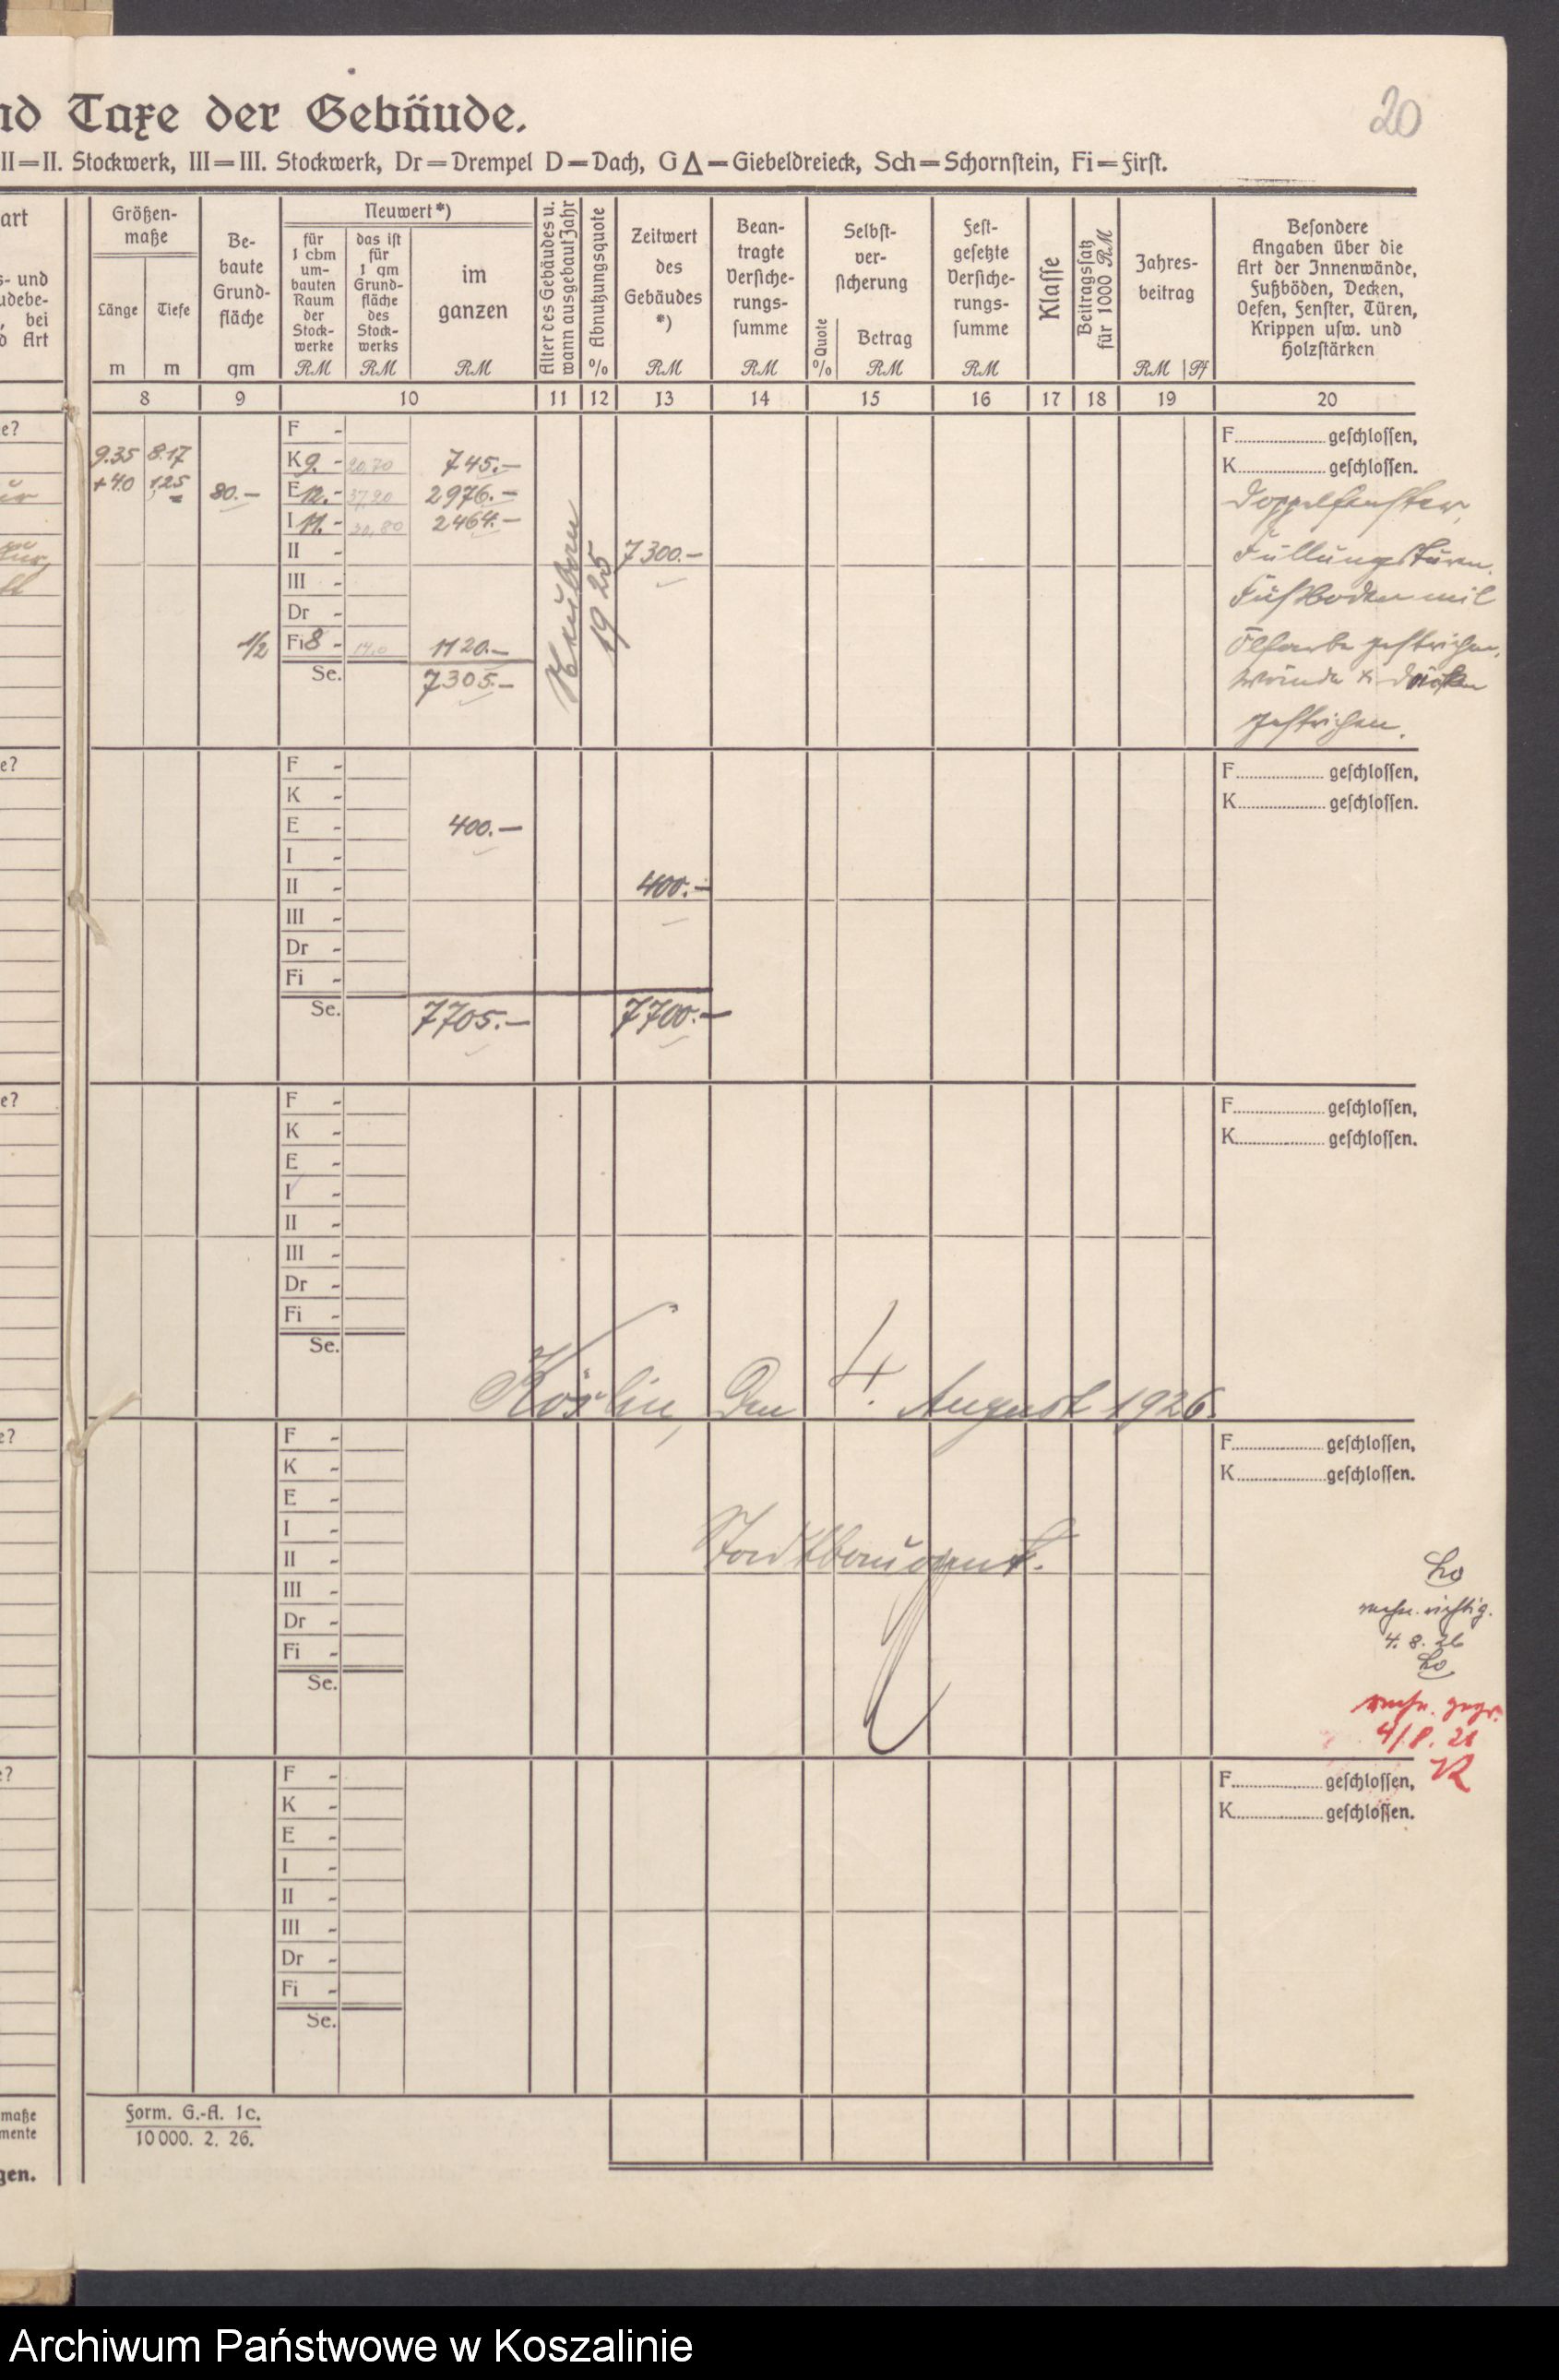 nd Taxe der Gebäude.
20
II=II. Stockwerk, III=III. Stockwerk, Dr=Drempel D=Dach, G△=Giebeldreieck, Sch=Schornstein, Fi=First.
art
s- und
udebe-
, bei
d Art
Größen-
maße
Länge
m
Tiefe
m
Be-
baute
Grund-
fläche
qm
Neuwert*)
für
1 cbm
um-
bauten
Raum
der
Stock-
werke
RM
das ist
für
1 qm
Grund-
fläche
des
Stock-
werks
RM
im
ganzen
RM
Alter des Gebäudes u.
wann ausgebaut Jahr
Abnutzungsquote
%
Zeitwert
des
Gebäudes
*)
RM
Bean-
tragte
Versiche-
rungs-
summe
RM
Selbst-
ver-
sicherung
Quote
%
Betrag
RM
Fest-
gesetzte
Versiche-
rungs-
summe
RM
Klasse
Beitragssatz
für 1000 RM
Jahres-
beitrag
RM Pf
Besondere
Angaben über die
Art der Innenwände,
Fußböden, Decken,
Oefen, Fenster, Türen,
Krippen usw. und
Holzstärken
8 9 10 11 12 13 14 15 16 17 18 19 20
e?
F -
K 9. - 20,70 745.-
E 12. - 37,20 2976.-
I 11. - 30,80 2464.-
II -
III -
Dr -
Fi 8 - 14,0 1120.-
Se. 7305.-
9.35 8.17
+4.0 1,25
80.-
1/2
Neubau
1925
7300.-
F. geschlossen,
K. geschlossen.
Doppelfenster,
Füllungstüren.
Fußboden mit
Ölfarbe gestrichen,
Wände & Decken
gestrichen.
e?
F -
K -
E - 400.-
I -
II - 400.-
III -
Dr -
Fi -
Se. 7705.- 7700.-
F. geschlossen,
K. geschlossen.
e?
F -
K -
E -
I -
II -
III -
Dr -
Fi -
Se.
F. geschlossen,
K. geschlossen.
Köslin, den 4. August 1926.
e?
F -
K -
E -
I -
II -
III -
Dr -
Fi -
Se.
F. geschlossen,
K. geschlossen.
Stadtbauamt.
rechn. richtig.
4. 8. 26
rechn. gepr.
4/8. 26
e?
F -
K -
E -
I -
II -
III -
Dr -
Fi -
Se.
F. geschlossen,
K. geschlossen.
maße
mente
gen.
Form. G.-A. 1c.
10000. 2. 26.
Archiwum Państwowe w Koszalinie